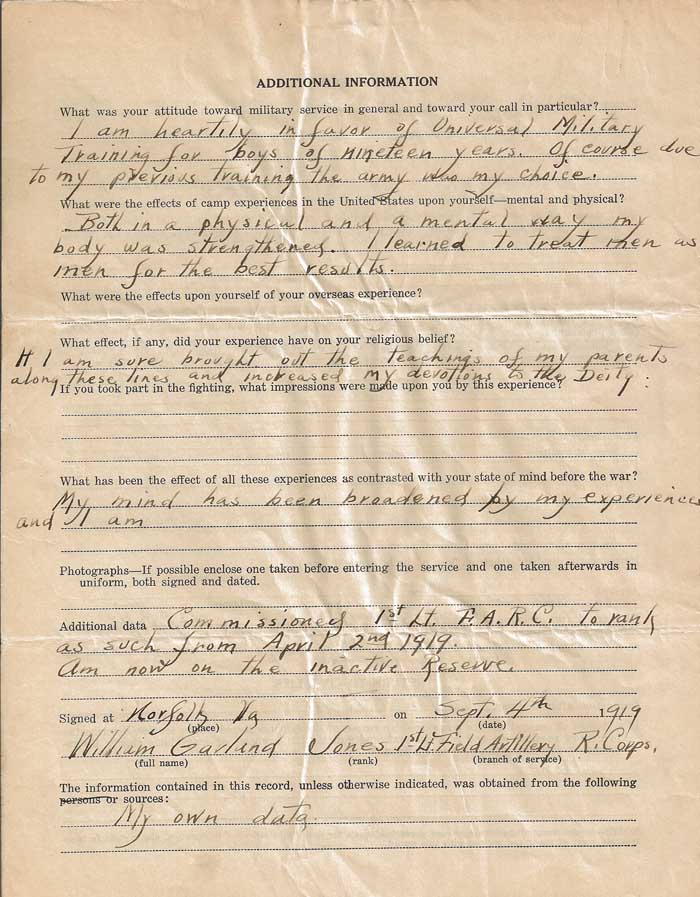 ADDITIONAL INFORMATION
What was your attitude toward military service in general and toward your call in particular?
I am heartily in favor of Universal Military
Training for boys of nineteen years. Of course due
to my previous training the army was my choice.
What were the effects of camp experiences in the United States upon yourself—mental and physical?
Both in a physical and a mental way my
body was strengthened. I learned to treat men as
men for the best results.
What were the effects upon yourself of your overseas experience?
What effect, if any, did your experience have on your religious belief?
It I am sure brought out the teachings of my parents
along these lines and increased my devotions to the Deity.
If you took part in the fighting, what impressions were made upon you by this experience?
What has been the effect of all these experiences as contrasted with your state of mind before the war?
My mind has been broadened by my experiences
and I am
Photographs—If possible enclose one taken before entering the service and one taken afterwards in
uniform, both signed and dated.
Additional data Commissioned 1st Lt. F.A.R.C. to rank
as such from April 2nd 1919.
Am now on the inactive Reserve.
Signed at Norfolk Va on Sept. 4th 1919
(place) (date)
William Garland Jones 1st Lt Field Artillery R. Corps.
(full name) (rank) (branch of service)
The information contained in this record, unless otherwise indicated, was obtained from the following
persons or sources:
My own data.